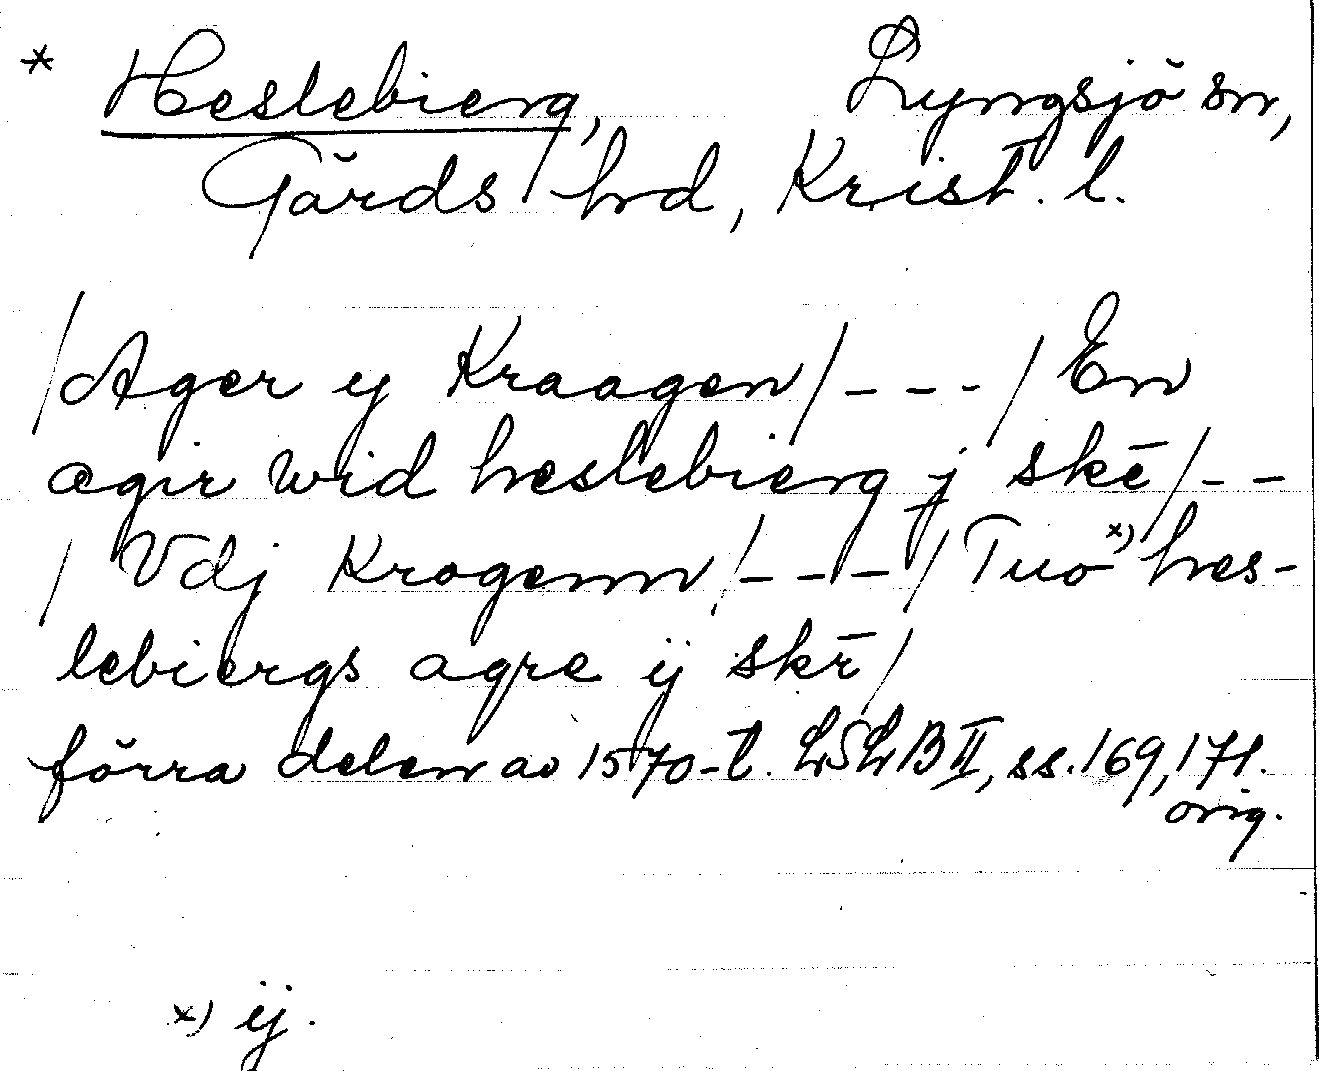 * Heslebierg, Lyngsjö sn,
Gärds hrd, Krist. l.
/Ager ÿ Kraagen/---/En
agir wid heslebierg j skē/--
/Vdj Krogenn/---/Tuo x) hes-
lebiergs agre ÿ skr̄/
förra delen av 1570-t. LSLB II, ss. 169, 171.
orig.
x) ÿ.